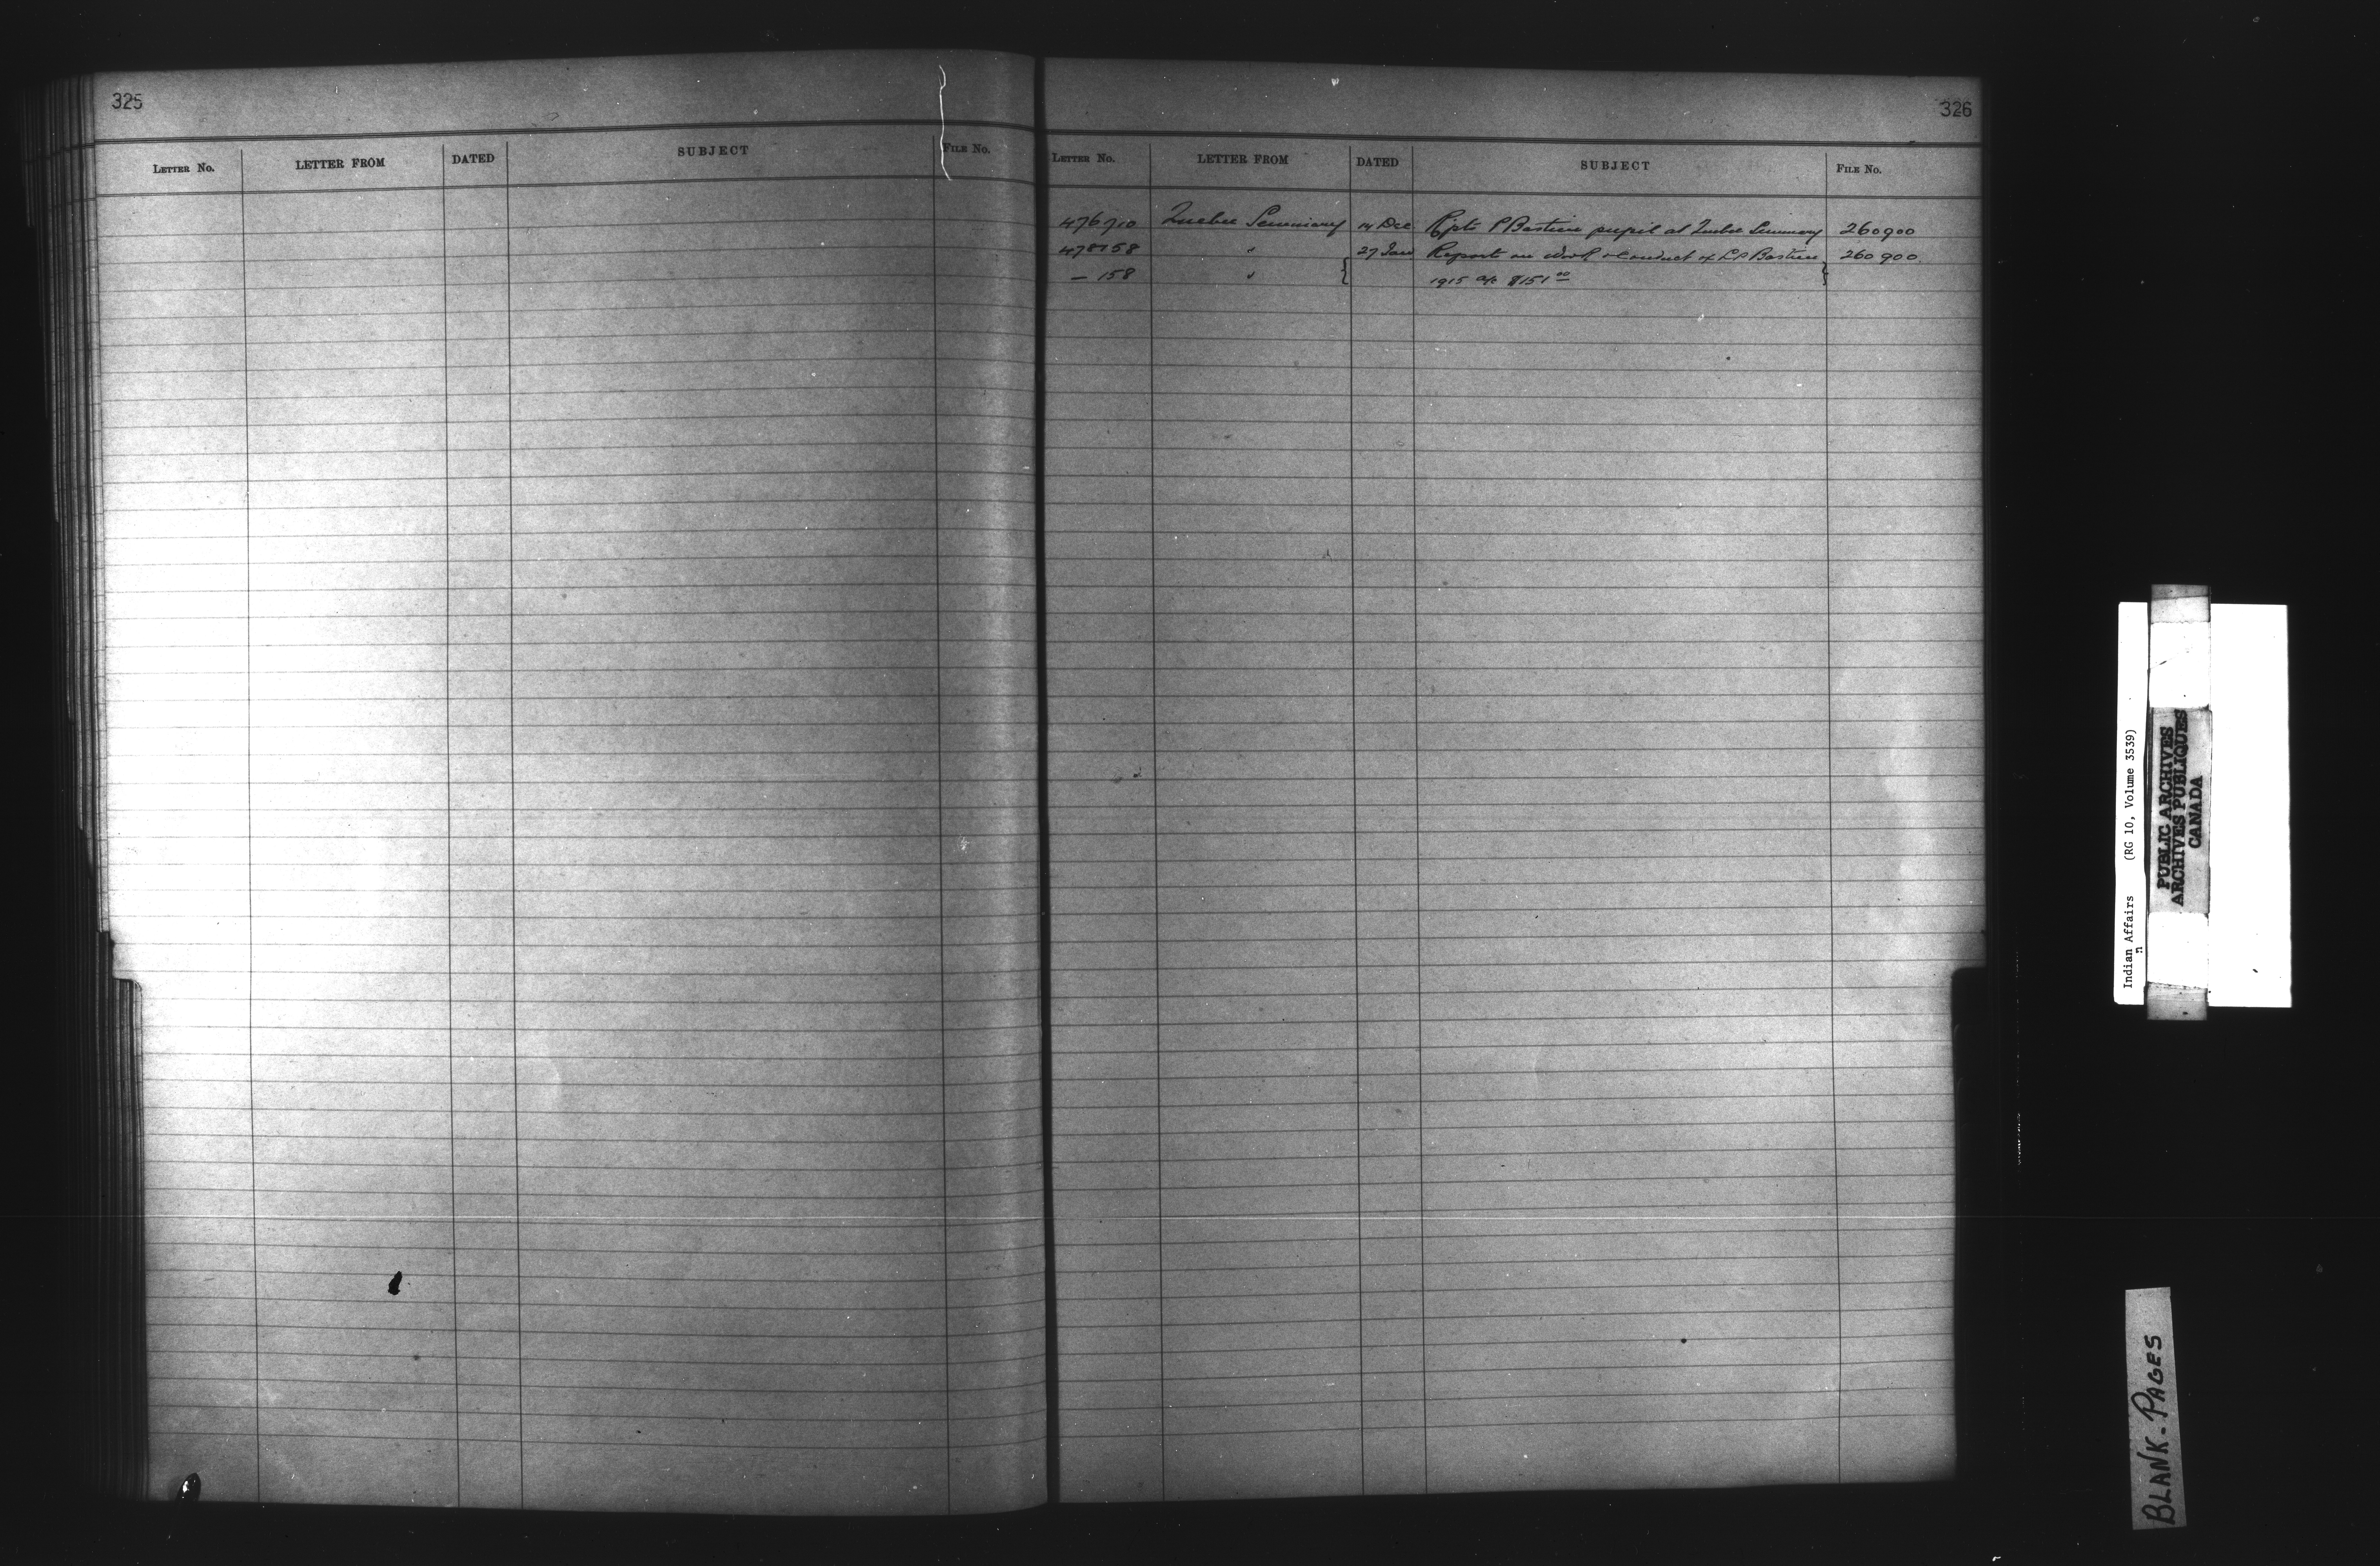 325
LETTER No. LETTER FROM DATED SUBJECT FILE No.
326
LETTER No. LETTER FROM DATED SUBJECT FILE No.
476710 Quebec Seminary 14 Dec Rpts P Bastien pupil at Quebec Seminary 260900
478158 " 27 Jan Report on work & conduct of L P Bastien 260900
— 158 " 1915 a/c $151 00
Indian Affairs (RG 10, Volume 3539)
PUBLIC ARCHIVES
ARCHIVES PUBLIQUES
CANADA
BLANK-PAGES